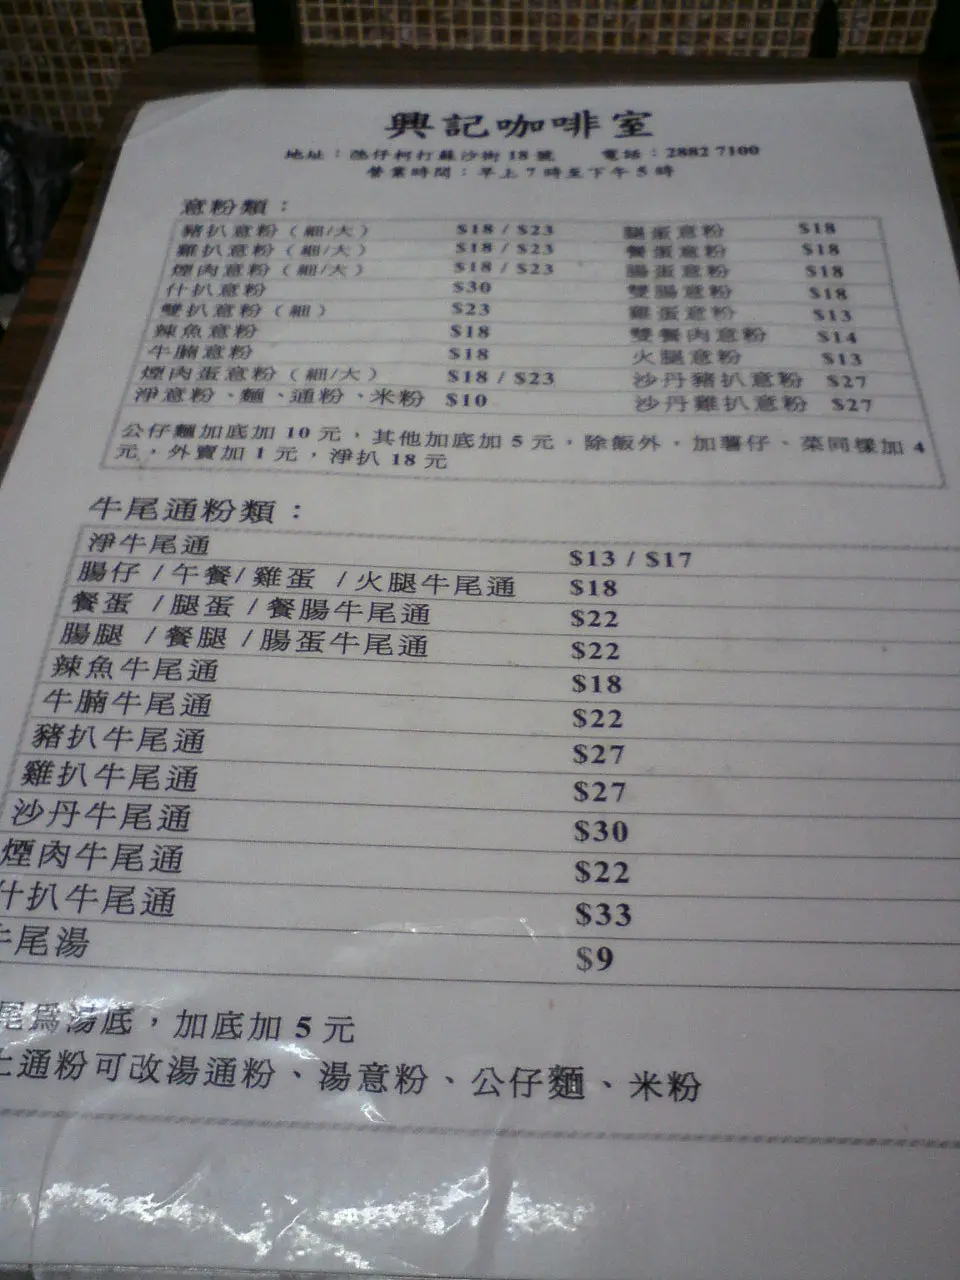 興記咖啡室
地址：氹仔柯打蘇沙街 18 號 電話：2882 7100
營業時間：早上 7 時至下午 5 時
意粉類：
豬扒意粉（細/大） $18 / $23 腿蛋意粉 $18
雞扒意粉（細/大） $18 / $23 餐蛋意粉 $18
煙肉意粉（細/大） $18 / $23 腸蛋意粉 $18
什扒意粉 $30 雙腸意粉 $18
雙扒意粉（細） $23 雞蛋意粉 $13
辣魚意粉 $18 雙餐肉意粉 $14
牛腩意粉 $18 火腿意粉 $13
煙肉蛋意粉（細/大） $18 / $23 沙丹豬扒意粉 $27
淨意粉、麵、通粉、米粉 $10 沙丹雞扒意粉 $27
公仔麵加底加 10 元，其他加底加 5 元，除飯外，加薯仔、菜同樣加 4
元，外賣加 1 元，淨扒 18 元
牛尾通粉類：
淨牛尾通 $13 / $17
腸仔 /午餐/ 雞蛋 /火腿牛尾通 $18
餐蛋 /腿蛋 /餐腸牛尾通 $22
腸腿 /餐腿 /腸蛋牛尾通 $22
辣魚牛尾通 $18
牛腩牛尾通 $22
豬扒牛尾通 $27
雞扒牛尾通 $27
沙丹牛尾通 $30
煙肉牛尾通 $22
什扒牛尾通 $33
牛尾湯 $9
尾為湯底，加底加 5 元
上通粉可改湯通粉、湯意粉、公仔麵、米粉